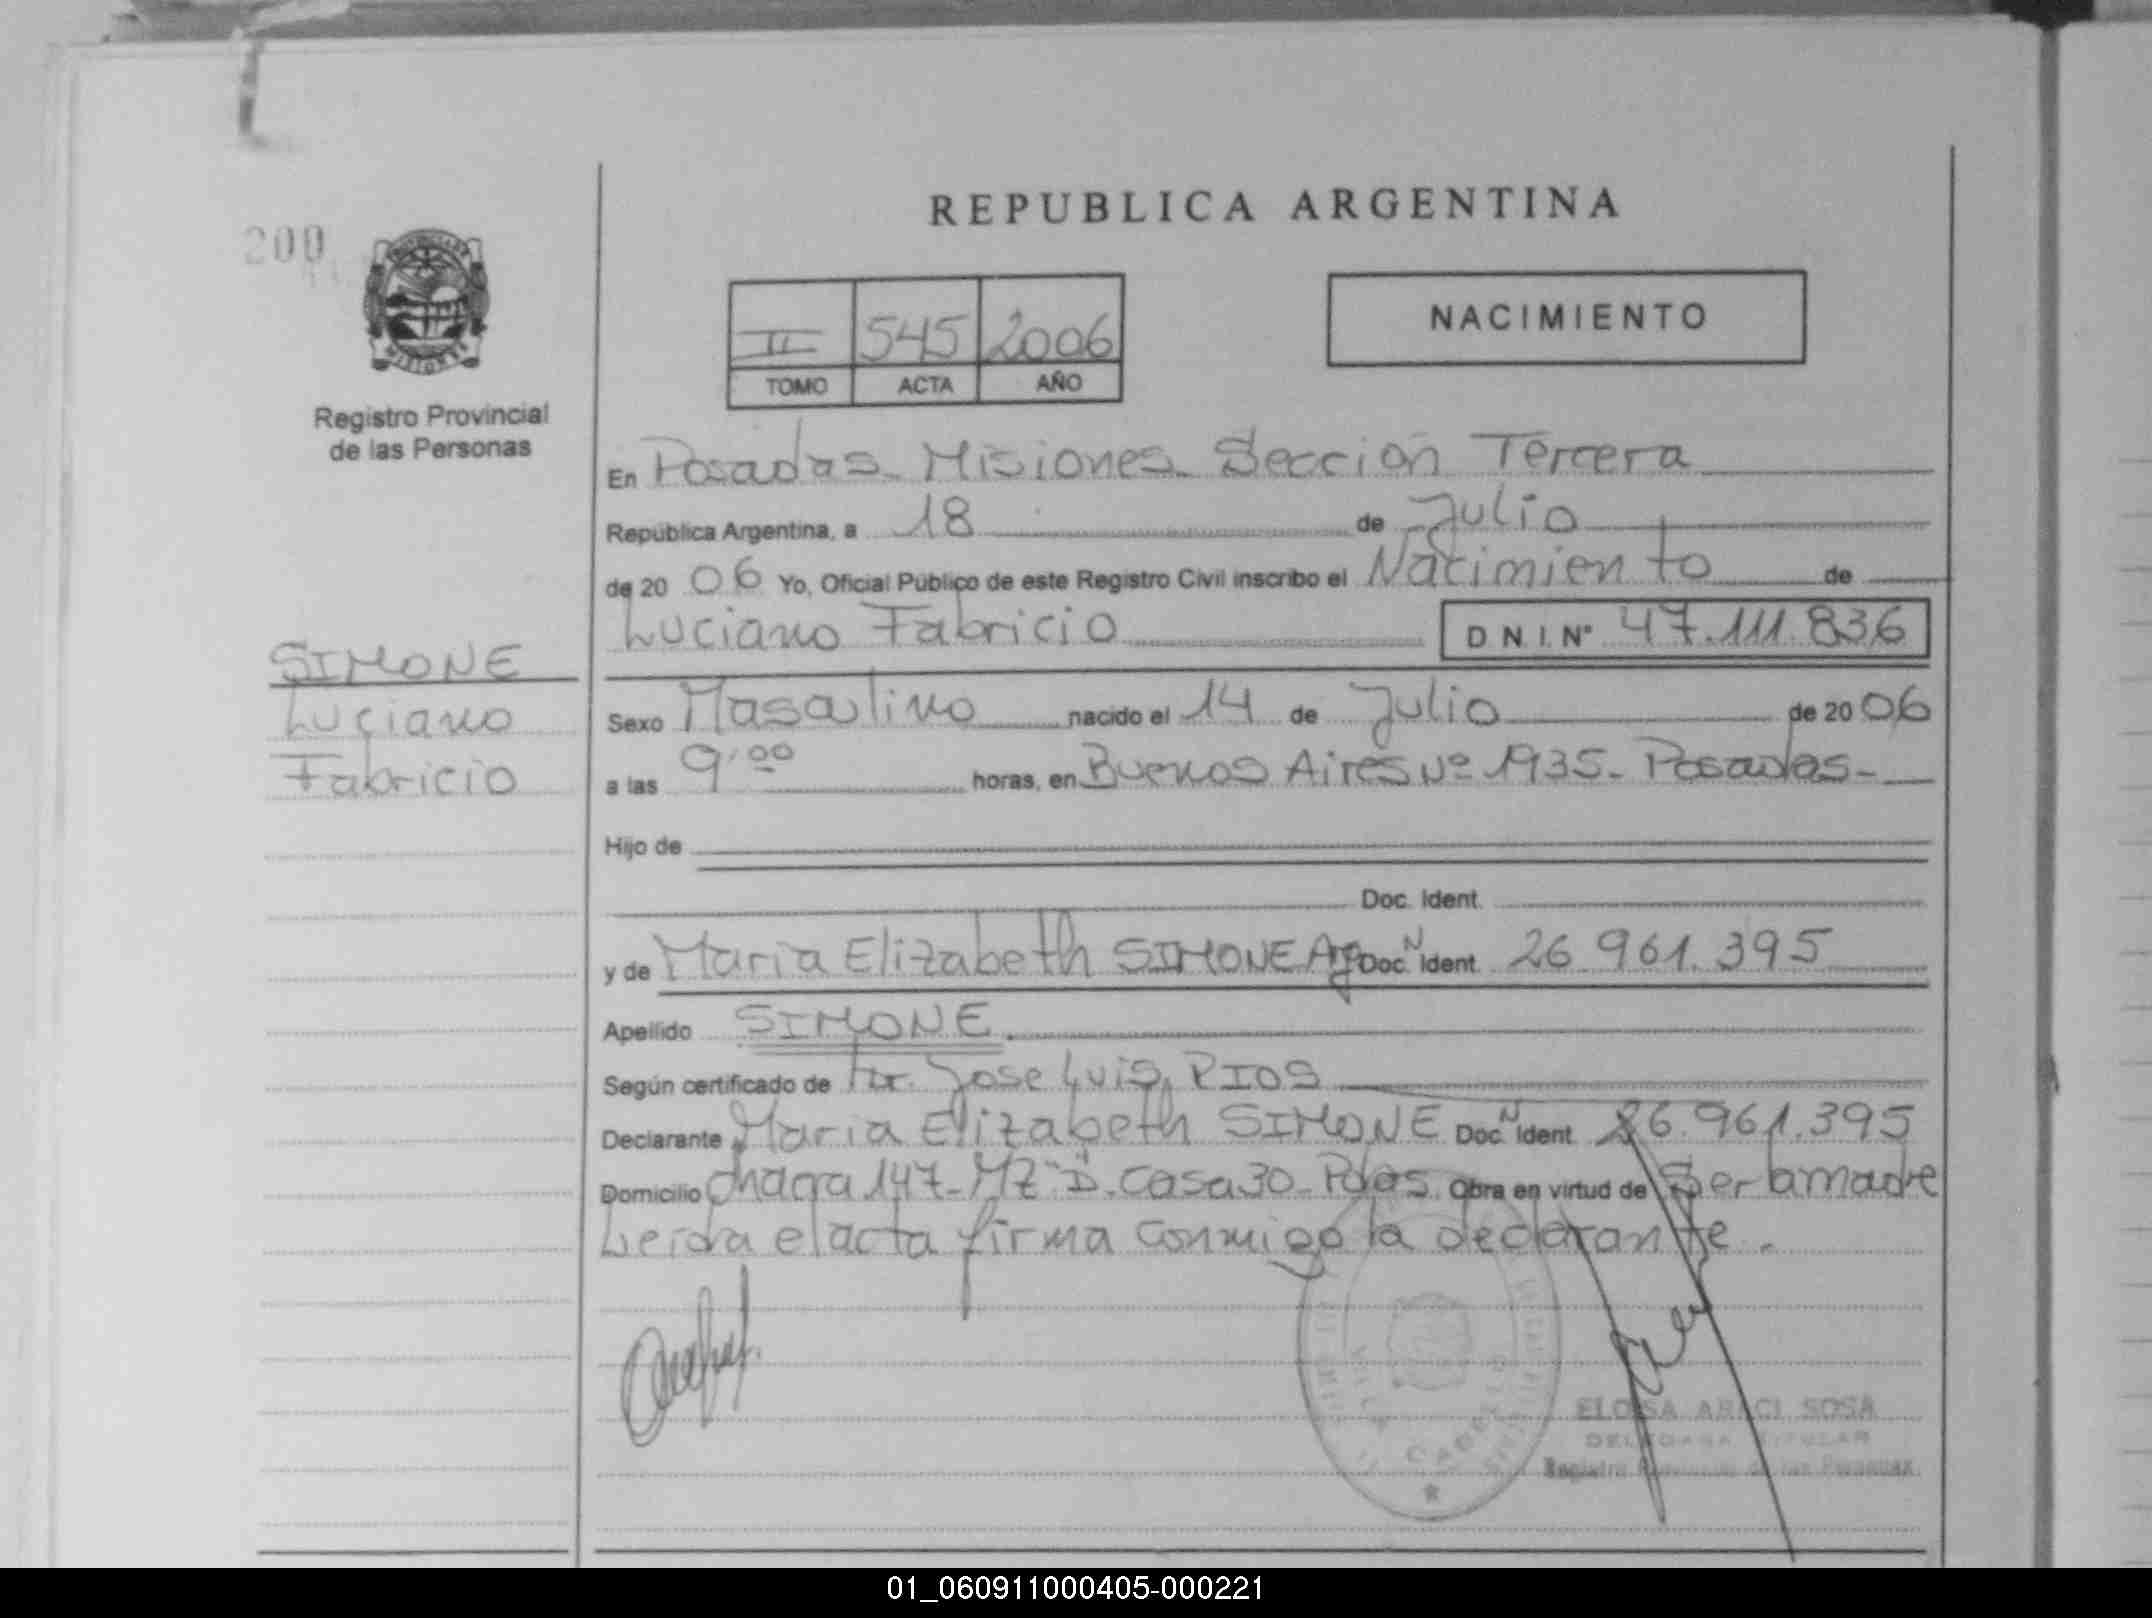 REPUBLICA ARGENTINA
200
NACIMIENTO
II 545 2006
TOMO ACTA AÑO
Registro Provincial
de las Personas
En Posadas Misiones Sección Tercera
República Argentina, a 18 de Julio
de 20 06 Yo, Oficial Público de este Registro Civil inscribo el Nacimiento de
Luciano Fabricio D.N.I.Nº 47.111.836
SIMONE
Luciano
Fabricio
Sexo Masculino nacido el 14 de Julio de 20 06
a las 9:00 horas, en Buenos Aires Nº 1935- Posadas-
Hijo de
Doc. Ident.
y de Maria Elizabeth SIMONE Arg Doc. N Ident. 26 961.395
Apellido SIMONE.
Según certificado de Dr. Jose Luis RIOS
Declarante Maria Elizabeth SIMONE Doc. N Ident. 26.961.395
Domicilio chacra 147- MZ "D". Casa 30- Pdas. Obra en virtud de Ser la madre
Leida el acta firma conmigo la declarante.
ELOISA ARACI SOSA
DELEGADA TITULAR
Registro Provincial de las Personas
01_060911000405-000221